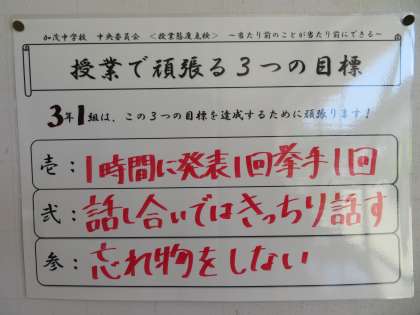 加茂中学校 中央委員会 <授業態度点検> ～当たり前のことが当たり前にできる～
授業で頑張る3つの目標
3年1組は、この3つの目標を達成するために頑張ります!
壱:1時間に発表1回挙手1回
弐:話し合いではきっちり話す
参:忘れ物をしない